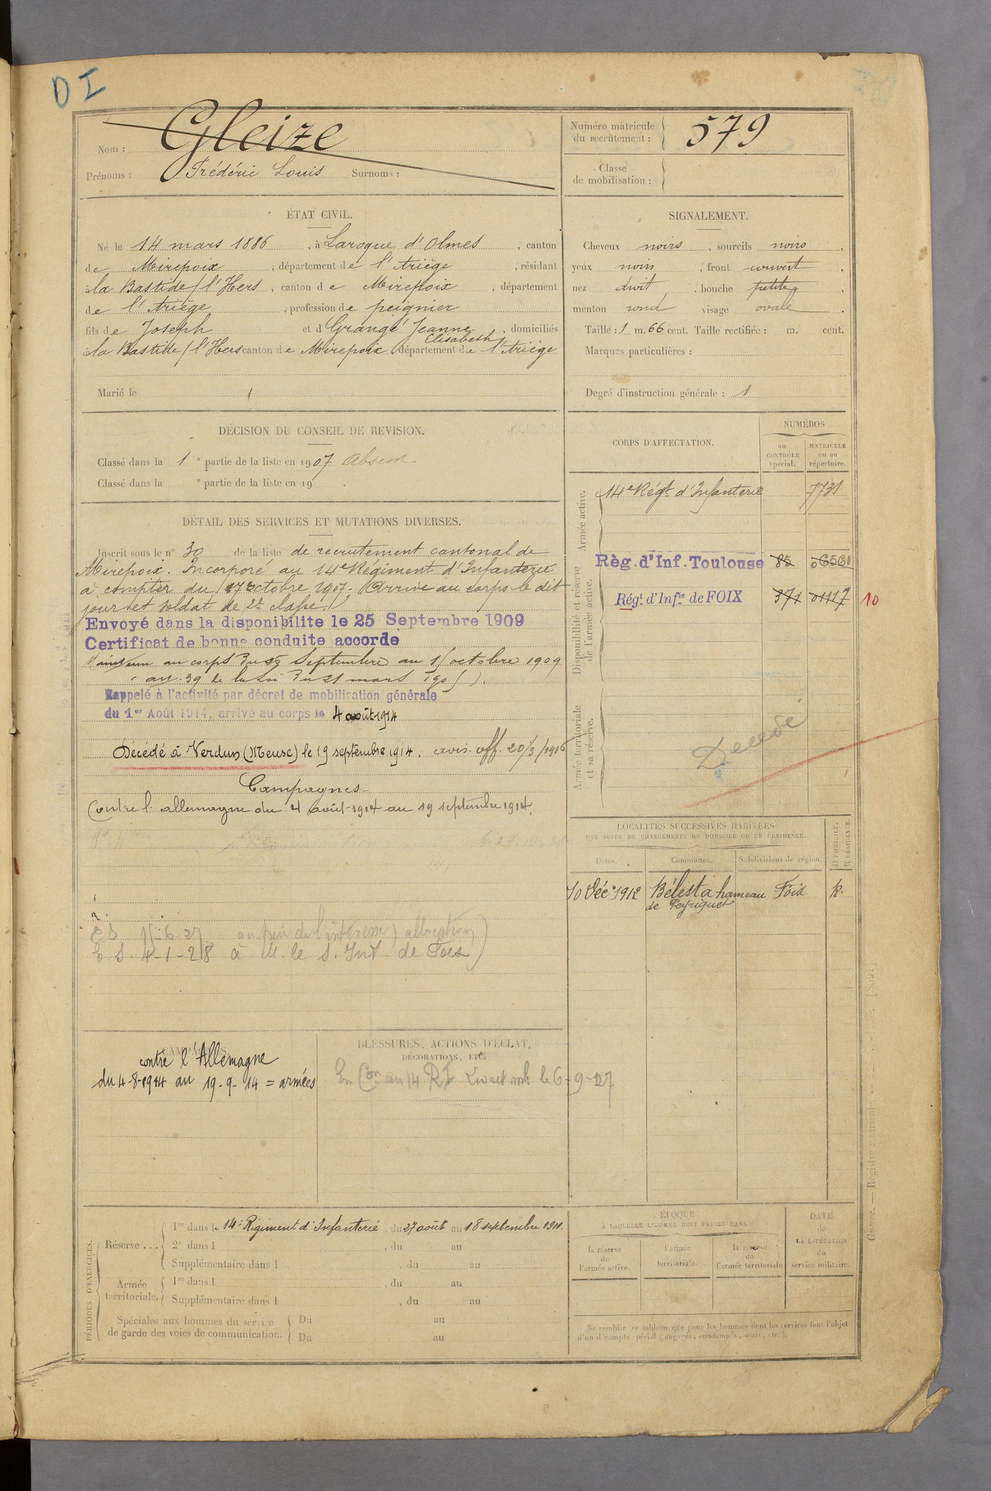 D I
Nom : Gleize
Prénoms : Frédéric Louis Surnoms :
Numéro matricule du recrutement : 579
Classe de mobilisation :
ÉTAT CIVIL.
Né le 14 mars 1886, à Laroque d'Olmes, canton
de Mirepoix, département de l'Ariège, résidant
à la Bastide s/ l'Hers, canton de Mirepoix, département
de l'Ariège, profession de peignier
fils de Joseph et de Grangé Jeanne Elisabeth, domiciliés
à la Bastide s/ l'Hers canton de Mirepoix, département de l'Ariège
Marié le
SIGNALEMENT.
Cheveux noirs, sourcils noirs,
yeux noirs, front couvert,
nez droit, bouche petite,
menton rond visage ovale
Taille : 1 m. 66 cent. Taille rectifiée : m. cent.
Marques particulières :
Degré d'instruction générale : 1
DÉCISION DU CONSEIL DE REVISION.
Classé dans la 1e partie de la liste en 1907 Absent
Classé dans la e partie de la liste en 19 .
DÉTAIL DES SERVICES ET MUTATIONS DIVERSES.
Inscrit sous le n° 30 de la liste de recrutement cantonal de
Mirepoix. Incorporé au 14e Régiment d'Infanterie
à compter du 7 octobre 1907. Arrivé au corps le dit
jour et soldat de 2e classe.
Envoyé dans la disponibilite le 25 Septembre 1909
Certificat de bonne conduite accorde
Maintenu au corps du 25 Septembre au 1er octobre 1909
(art. 39 de la loi du 21 mars 1905).
Rappelé à l'activité par décret de mobilisation générale
du 1er Août 1914, arrivé au corps le 4 août 1914
Décédé à Verdun (Meuse) le 19 septembre 1914. avis off. 20/3/1916
Campagnes
Contre l'allemagne du 4 août 1914 au 19 septembre 1914.
E S. 15-6-27 au sujet de l'intéressé (allocation)
E S. 4-1-28 à M. le S. Int. de Foix
CORPS D'AFFECTATION.
NUMÉROS
au CONTRÔLE spécial.
MATRICULE ou au répertoire.
Armée active.
14e Régt d'Infanterie 7731
Disponibilité et réserve de l'armée active.
Règ. d'Inf. Toulouse 85 06561
Régt d'Infie de FOIX 371 01117 10
Armée territoriale et sa réserve.
Décédé
LOCALITÉS SUCCESSIVES HABITÉES
PAR SUITE DE CHANGEMENTS DE DOMICILE OU DE RÉSIDENCE.
Dates. Communes. Subdivisions de région. D. DOMICILE. R. RÉSIDENCE.
10 Déc. 1912 Bélesta hameau Foix R.
de Peyriguet
CAMPAGNES.
contre l'Allemagne
du 4-8-1914 au 19-9-14 = armées
BLESSURES, ACTIONS D'ÉCLAT,
DÉCORATIONS, ETC.
En Con au 14 RI le 6-9-27
PÉRIODES D'EXERCICES.
Réserve . . .
1re dans le 14e Régiment d'Infanterie, du 27 août au 18 septembre 1911.
2e dans l , du au
Supplémentaire dans l , du au
Armée territoriale.
1re dans l , du au
Supplémentaire dans l , du au
Spéciales aux hommes du service
de garde des voies de communication.
Du au
Du au
ÉPOQUE
À LAQUELLE L'HOMME DOIT PASSER DANS :
la réserve de l'armée active.
l'armée territoriale.
la réserve de l'armée territoriale
DATE
de
LA LIBÉRATION
du
service militaire.
Ne remplir ce tableau que pour les hommes dont les services font l'objet